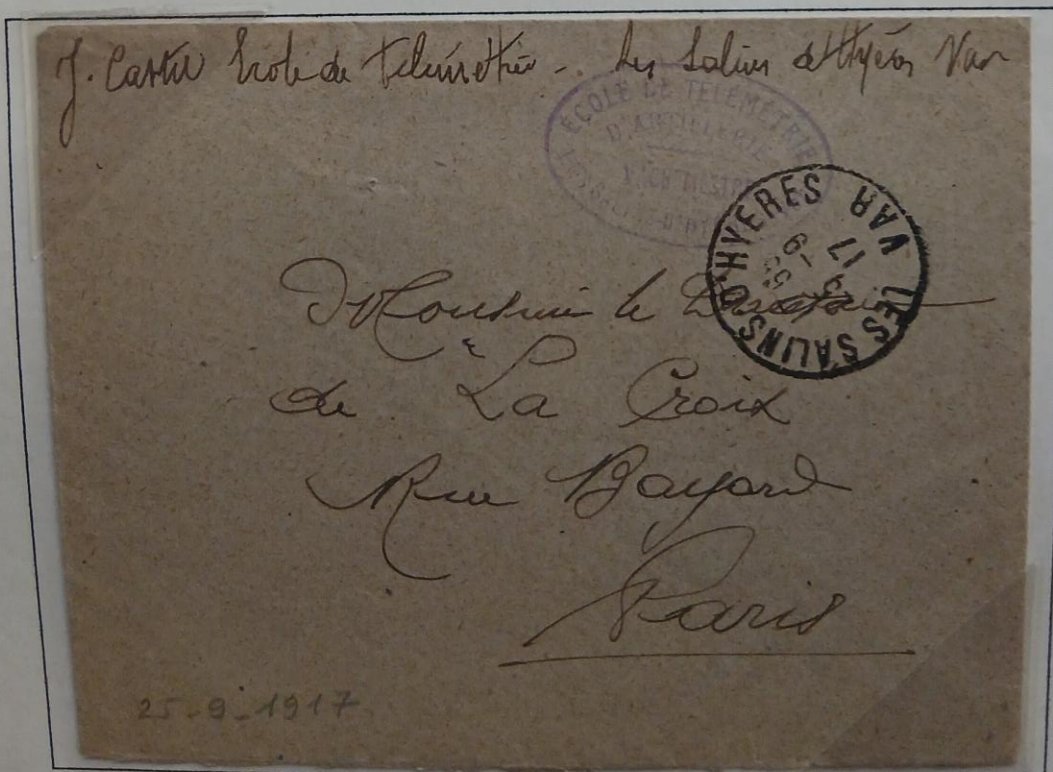 J. Castel École de télémétrie - Les Salins d'Hyères Var
ÉCOLE DE TÉLÉMÉTRIE
D'ARTILLERIE
LES SALINS D'HYÈRES
LES SALINS D'HYERES VAR
17
-9
Monsieur le Directeur
de La Croix
Rue Bayard
Paris
25-9-1917